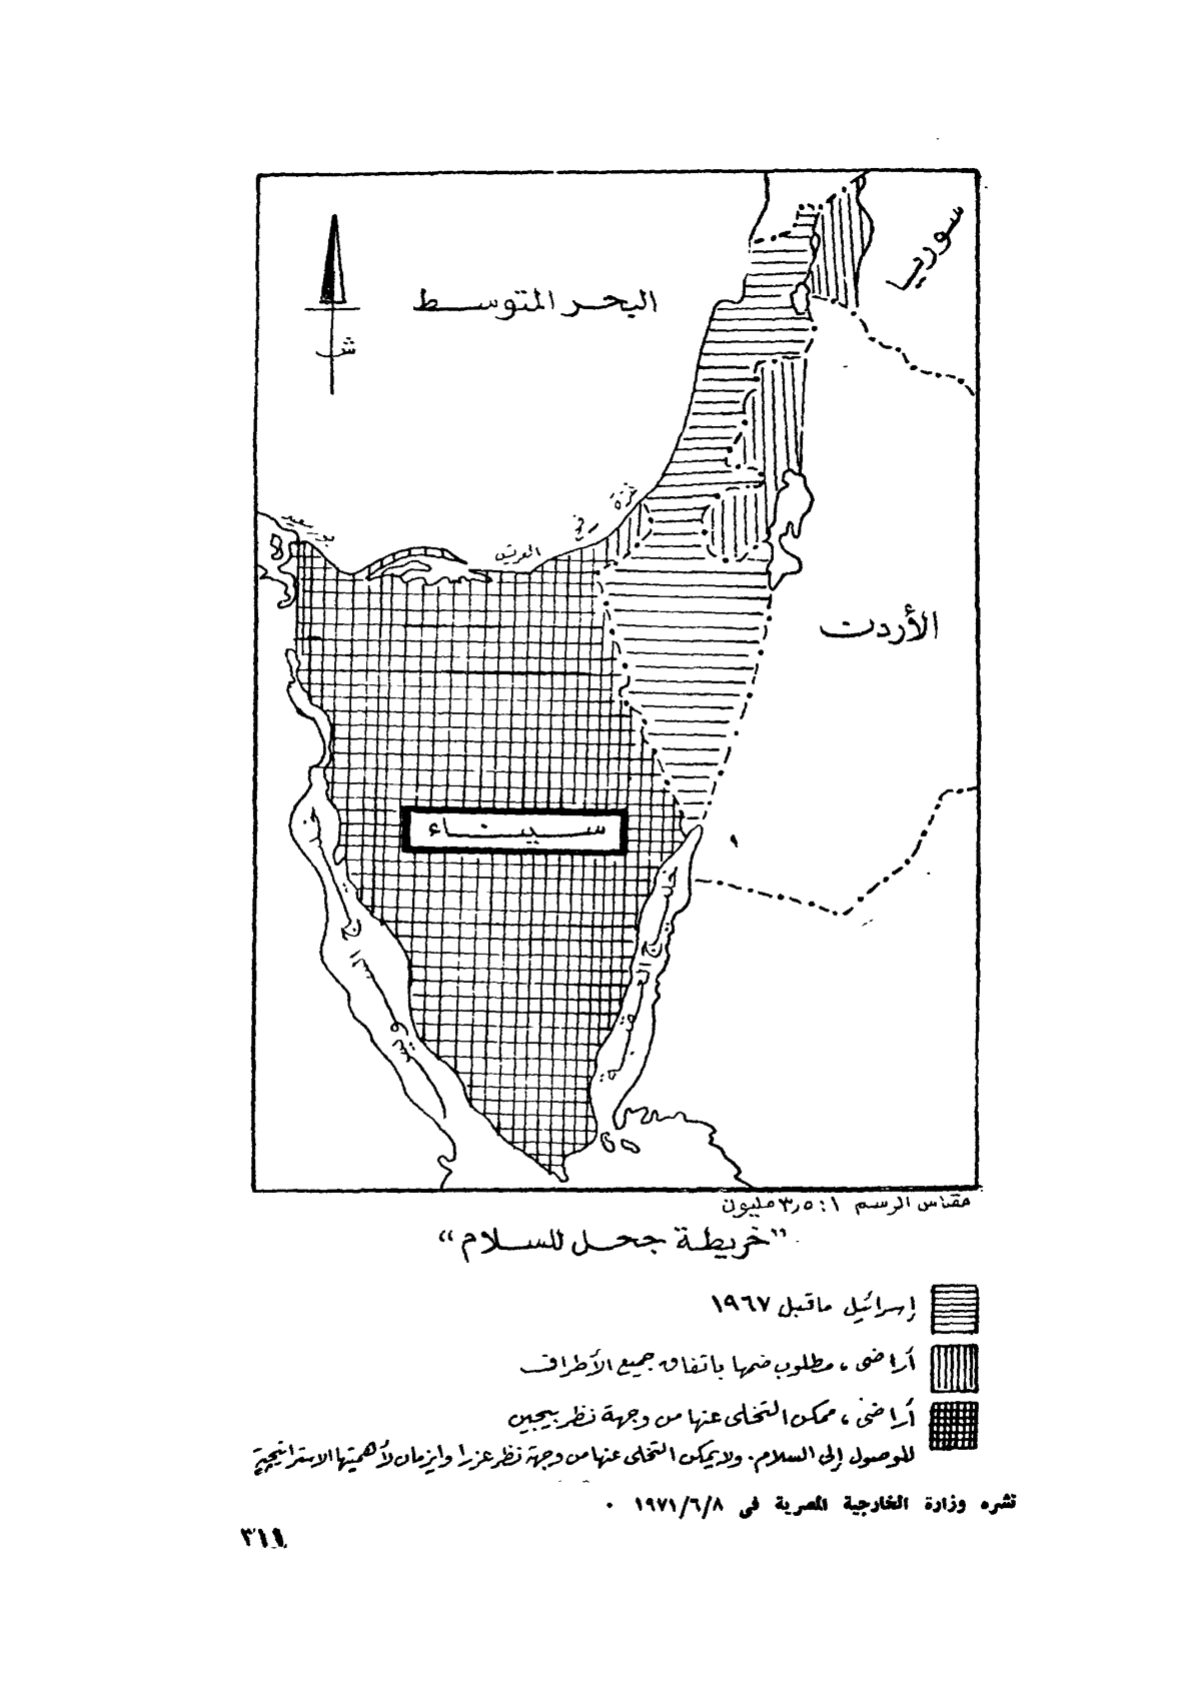 سوريا
البحر المتوسط
ش
غزة
رفح
العريش
بور سعيد
الأردن
سيناء
خليج العقبة
خليج السويس
مقياس الرسم ١ : ٣٫٥ مليون
"خريطة جحل للسلام"
إسرائيل ماقبل ١٩٦٧
أراضى ، مطلوب ضمها باتفاق جميع الأطراف
أراضى ، ممكن التخلى عنها من وجهة نظر بيجين
للوصول إلى السلام . ولايمكن التخلى عنها من وجهة نظر عزرا وايزمان لأهميتها الاستراتيجية
نشره وزارة الخارجية المصرية فى ١٩٧١/٦/٨ ٠
٣١١